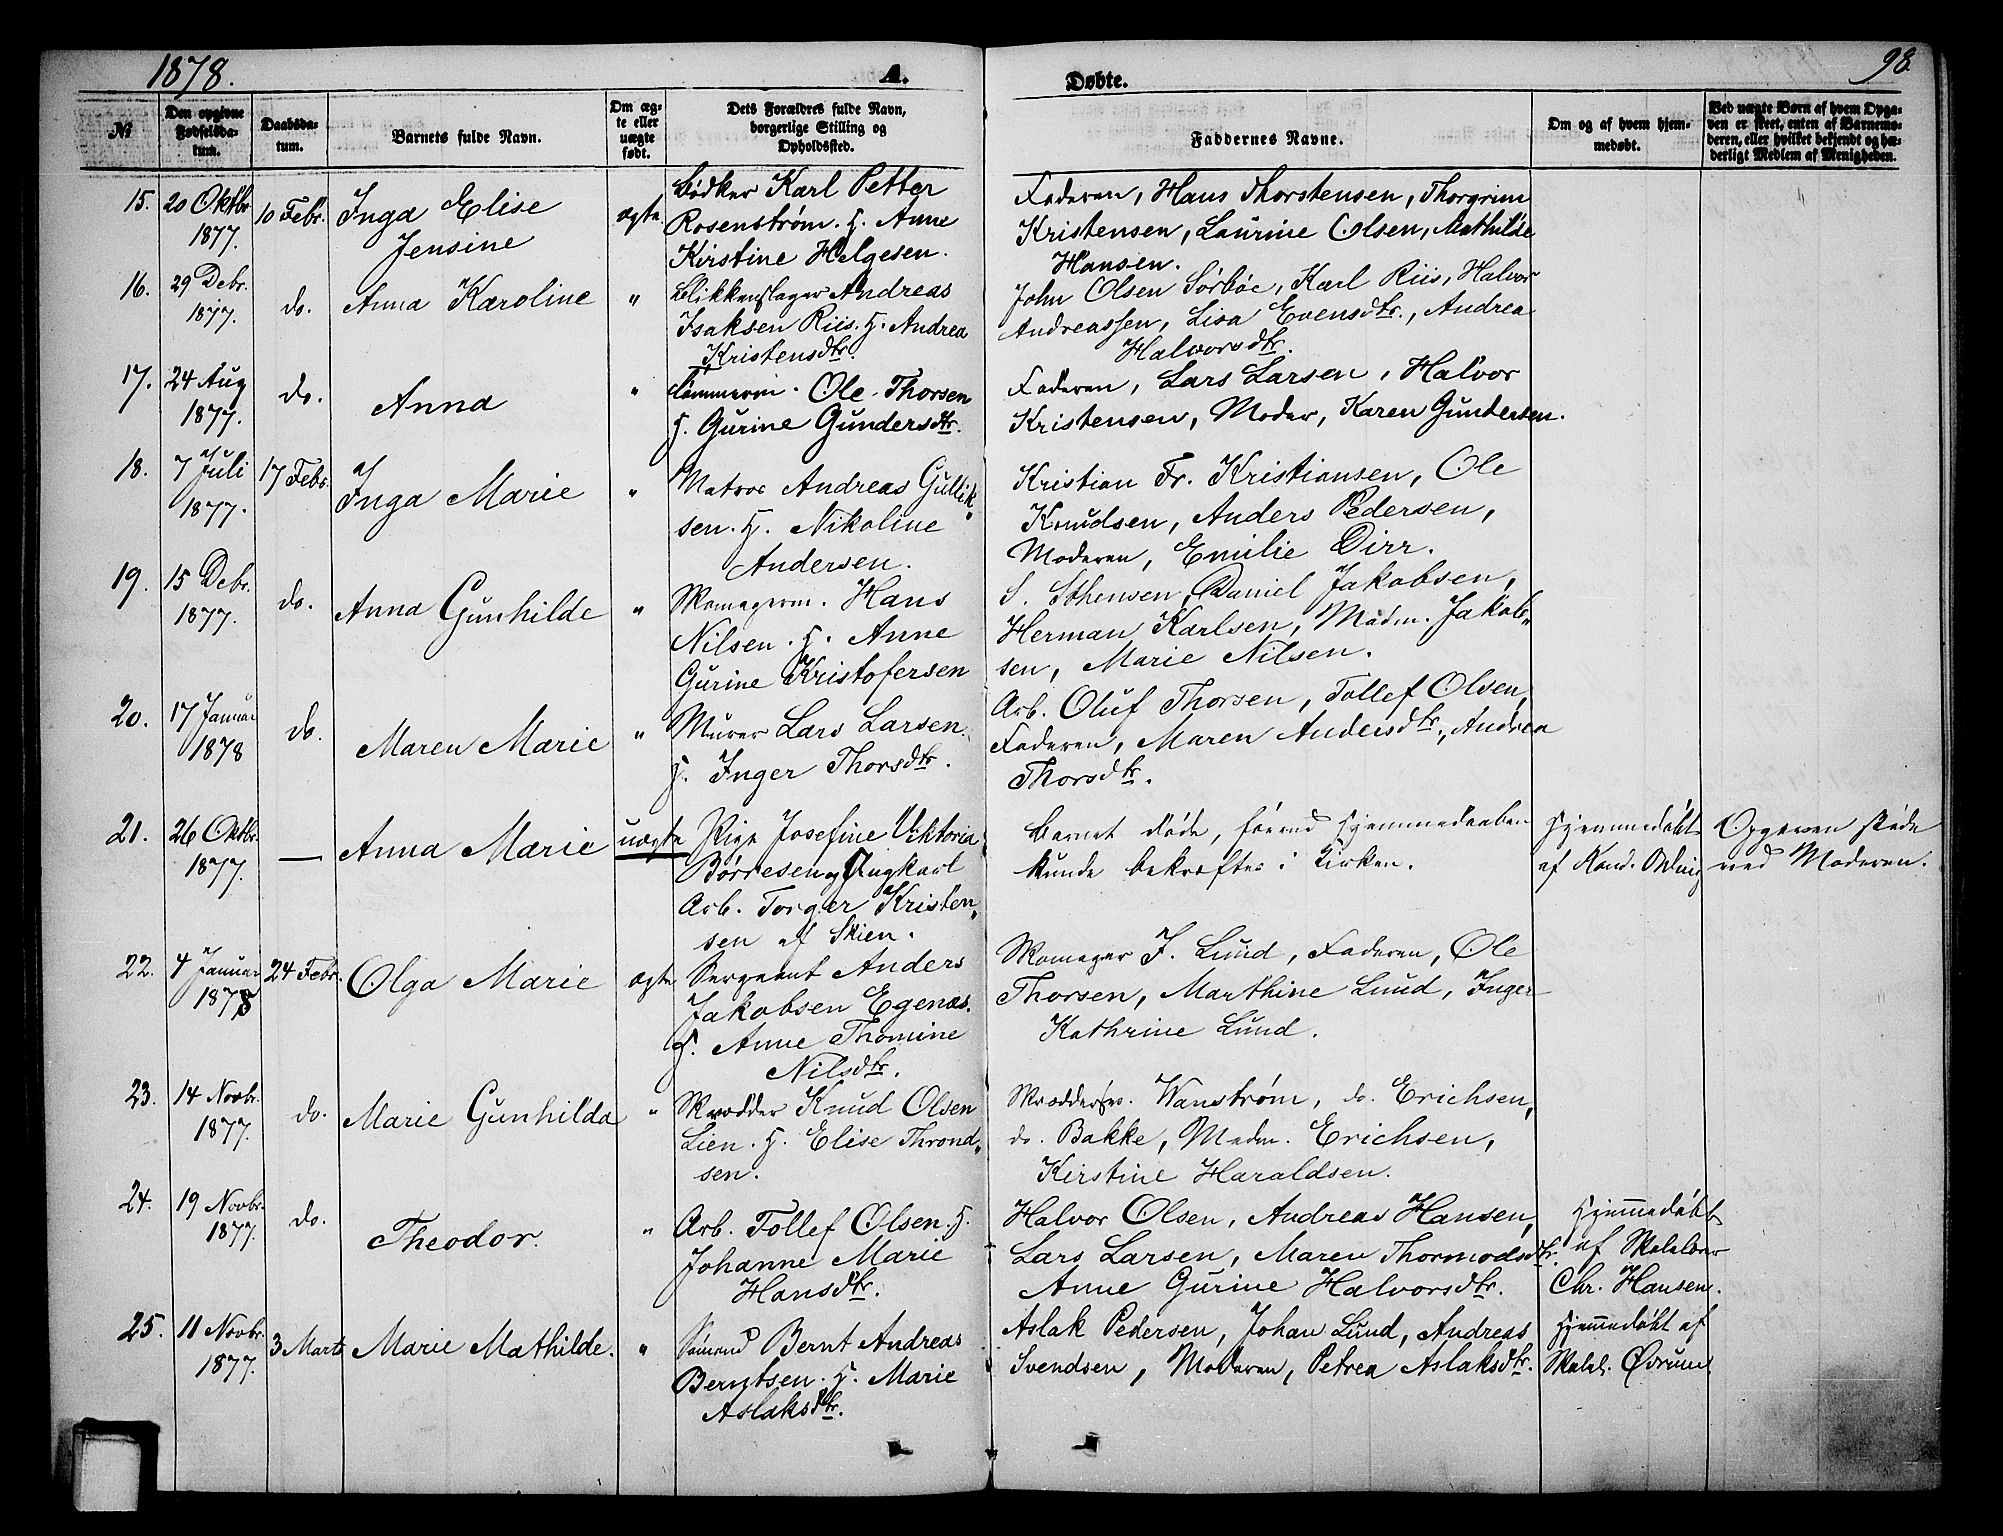 1878.
A.
Døbte.
98.
№
Den opgivne Fødselsdatum.
Daabsdatum.
Barnets fulde Navn.
Om ægte eller uægte født.
Dets Forældres fulde Navn, borgerlige Stilling og Opholdssted.
Faddernes Navne.
Om og af hvem hjemmedøbt.
Ved uægte Børn af hvem Opgaven er skeet, enten af Barnemoderen, eller hvilket bekjendt og hæderligt Medlem af Menigheden.
15. 20 Oktbr. 1877. 10 Febr. Inga Elise Jensine ægte
Bødker Karl Petter
Rosenstrøm. H. Anne
Kirstine Helgesen.
Faderen, Hans Thorstensen, Thorgrim
Kristensen, Laurine Olsen, Mathilde
Hansen.
16. 29 Debr. 1877. do. Anna Karoline "
Blikkenslager Andreas
Isaksen Riis. H. Andrea
Kristensdtr.
John Olsen Sörböe, Karl Riis, Halvor
Andreassen, Lisa Evensdtr., Andrea
Halvorsdtr.
17. 24 Aug 1877. do. Anna "
Tømmerm. Ole Thorsen
H. Gurine Gundersdtr.
Faderen, Lars Larsen, Halvor
Kristensen, Moder, Karen Gundersen.
18. 7 Juli 1877. 17 Febr. Inga Marie "
Matros Andreas Gullik-
sen. H. Nikoline
Andersen.
Kristian Fr. Kristiansen, Ole
Knudsen, Anders Pedersen,
Moderen, Emilie Dirr.
19. 15 Debr. 1877. do. Anna Gunhilde "
Skomagerm. Hans
Nilsen. H. Anne
Gurine Kristofersen
S. Sthensen, Daniel Jakobsen,
Herman Karlsen, Madm. Jakob-
sen, Marie Nilsen.
20. 17 Januar 1878 do. Maren Marie "
Murer Lars Larsen.
H. Inger Thorsdtr.
Arb. Oluf Thorsen, Tollef Olsen,
Faderen, Maren Andersdtr., Andrea
Thorsdtr.
21. 26 Oktbr. 1877. — Anna Marie uægte
Pige Josefine Viktoria
Børresen og Ungkarl
Arb. Torger Kristen-
sen af Skien.
Barnet døde, förend Hjemmedaaben
kunde bekræftes i Kirken.
Hjemmedøbt
af Kand.
Opgaven skede
ved Moderen.
22. 4 Januar 1878 24 Febr. Olga Marie ægte
Sergeant Anders
Jakobsen Egenæs.
H. Anne Thomine
Nilsdtr.
Skomager J. Lund, Faderen, Ole
Thorsen, Marthine Lund, Inger
Kathrine Lund.
23. 14 Novbr. 1877. do. Marie Gunhilda "
Skrædder Knud Olsen
Lien. H. Elise Thrond-
sen.
Skrædderm. Wanstrøm, do. Erichsen,
do. Bakke, Madm. Erichsen,
Kirstine Haraldsen.
24. 19 Novbr. 1877. do. Theodor. "
Arb. Tollef Olsen. H.
Johanne Marie
Hansdtr.
Halvor Olsen, Andreas Hansen,
Lars Larsen, Maren Thormodsdtr.
Anne Gurine Halvorsdtr.
Hjemmedøbt
af Skolelærer
Chr. Hansen.
25. 11 Novbr. 1877. 3 Marts Marie Mathilde. "
Sømand Bernt Andreas
Berntsen. H. Marie
Aslaksdtr.
Aslak Pedersen, Johan Lund, Andreas
Svendsen, Moderen, Petrea Aslaksdtr.
Hjemmedøbt af
Skolel. Øvrum